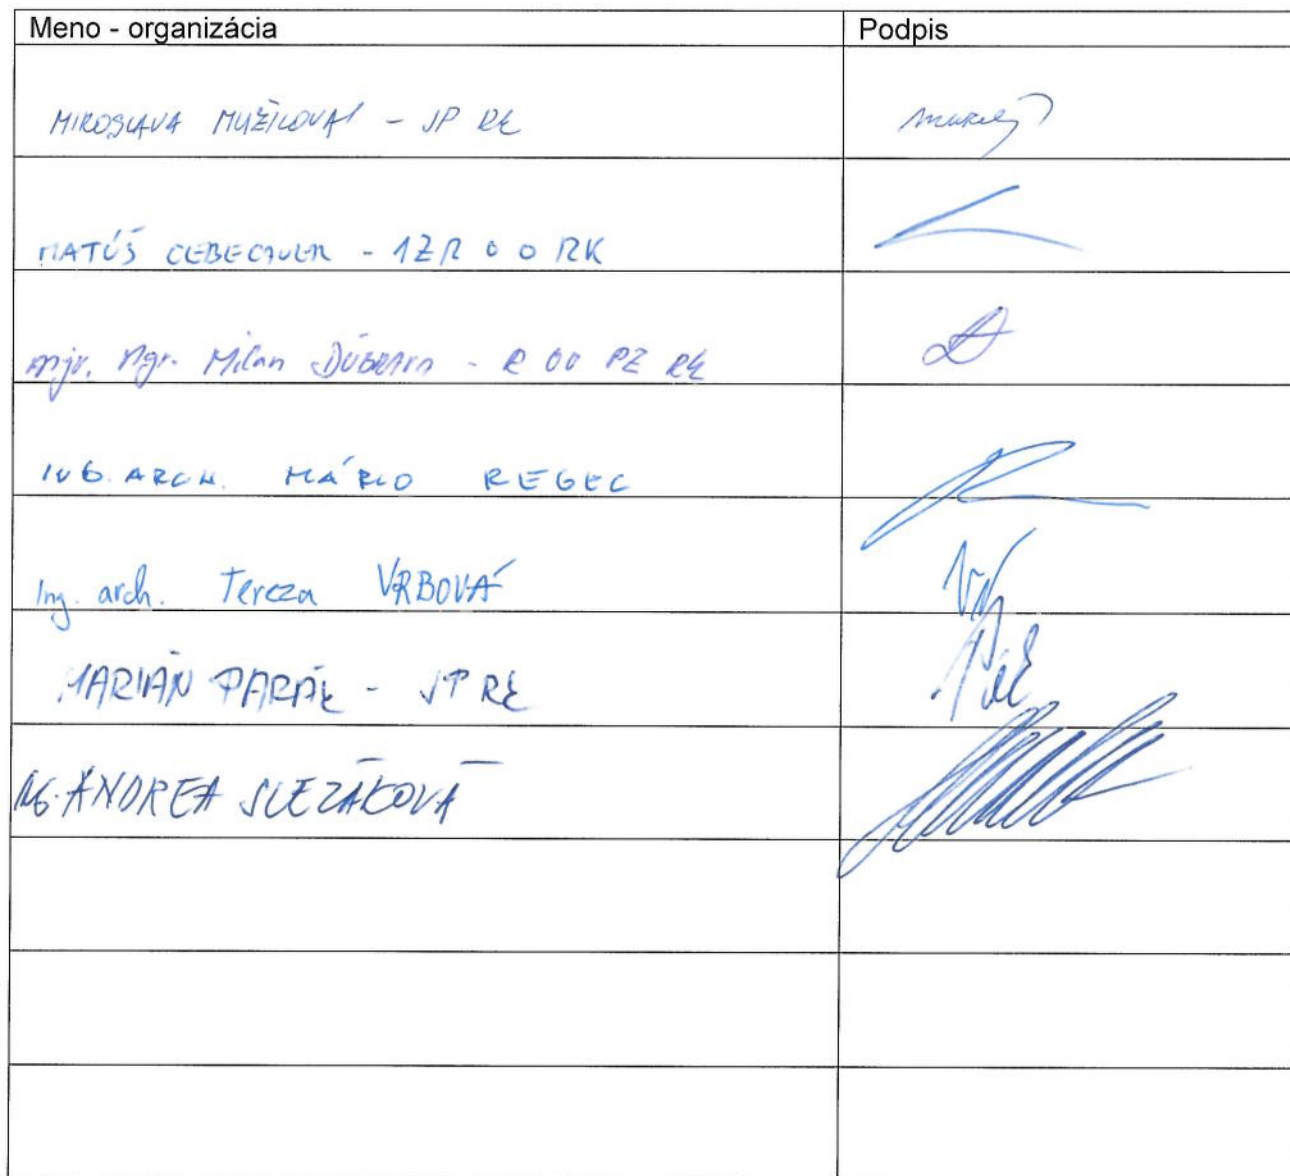 Meno - organizácia Podpis
MIROSLAVA MUŽILOVÁ - JP RK
MATÚŠ CEBECAUER - 1ZR O O RK
mjr. Mgr. Milan DÚBRAVA - R OO PZ RK
ING. ARCH. MÁRIO REGEC
Ing. arch. Tereza VRBOVÁ
MARIÁN PARÁK - JP RK
ING. ANDREA SLEZÁKOVÁ